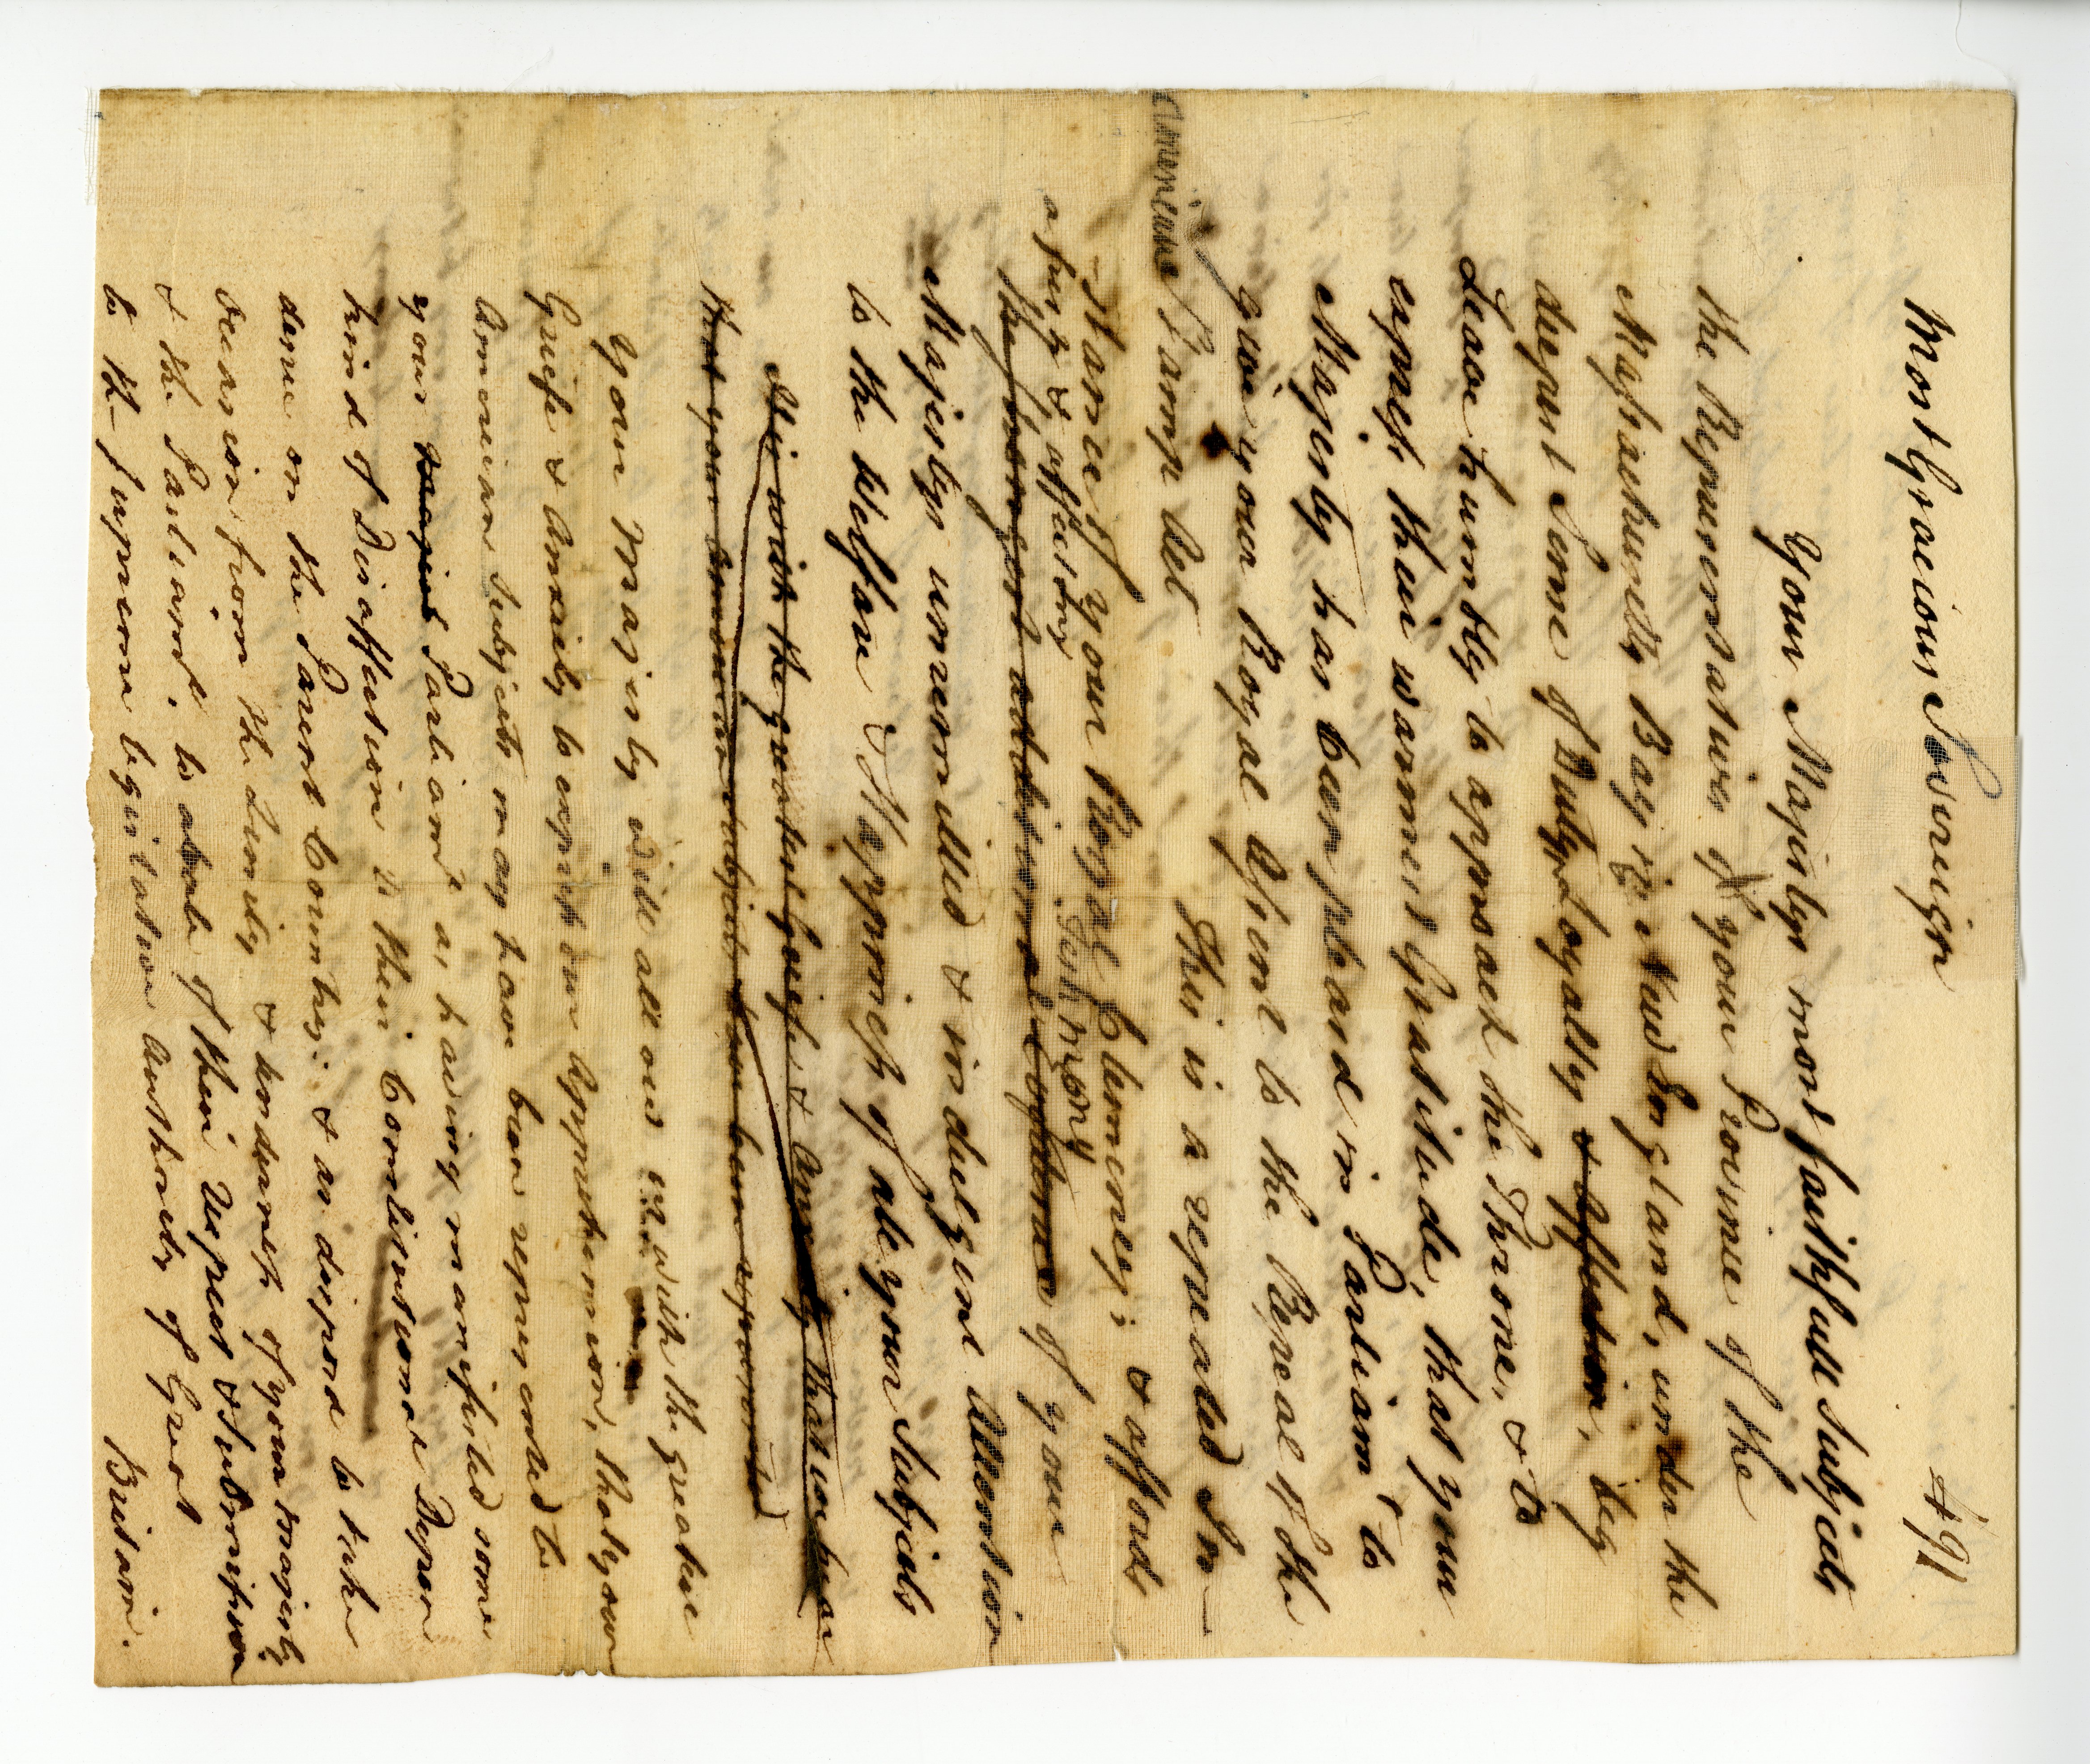 Most Gracious Sovereign
491
Your Majestys most faithfull Subjects
the Representatives of your Province of the
Massachusetts Bay in New England, under the
deepest Sense of Duty, Loyalty & Affection, beg
Leave humbly to approach the Throne, & to
express their warmest Gratitude, that your
Majesty has been pleasd in Parliamt to
give your Royal Assent to the Repeal of the
american Stamp Act This is a repeated In-
-stance of your Royal Clemency; & affords
a fresh & affecting Testimony
the strongest additional Evidence of your
Majestys unremitted & indulgent Attention
to the Welfare & Happiness of all your Subjects
It is with the greatest Griefe & Anxiety that we hear
that your American Subjects have been represented
Your Majesty will allow us with the greatest
Griefe & Anxiety to express our Apprehension, that your
American Subjects may have been represented to
your Majest Parliamt as having manifested some
kind of Disaffection to their Constitutional Depen
dence on the Parent Country: & as disposd to take
Occasion from the Lenity & tenderness of your Majesty
& the Parliamt, to abate of their respect & Submission
to the supreme legislative Authority of Great
Britain.